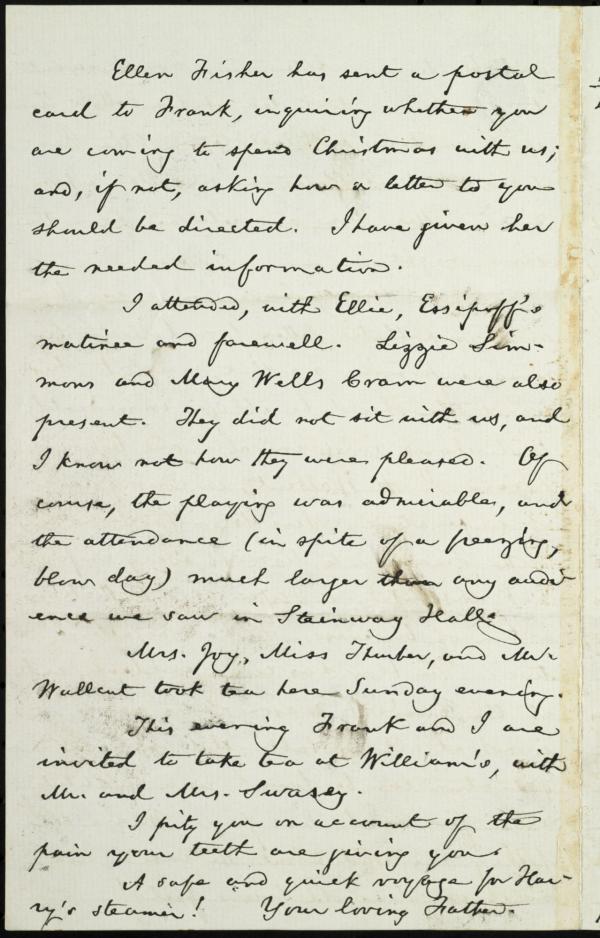 Ellen Fisher has sent a postal
card to Frank, inquiring whether you
are coming to spend Christmas with us;
and, if not, asking how a letter to you
should be directed. I have given her
the needed information.
I attended, with Ellie, Essipoff's
matinee and farewell. Lizzie Sim-
mons and Mary Wells Cram were also
present. They did not sit with us, and
I know not how they were pleased. Of
course, the playing was admirable, and
the attendance (in spite of a freezing,
blowy day) much larger than any audi-
ence we saw in Steinway Hall.
Mrs. Joy, Miss Thurber, and Mr.
Wallcut took tea here Sunday evening.
This evening Frank and I are
invited to take tea at William's, with
Mr. and Mrs. Swasey.
I pity you on account of the
pain your teeth are giving you.
A safe and quick voyage for Har-
ry's steamer! Your loving Father.